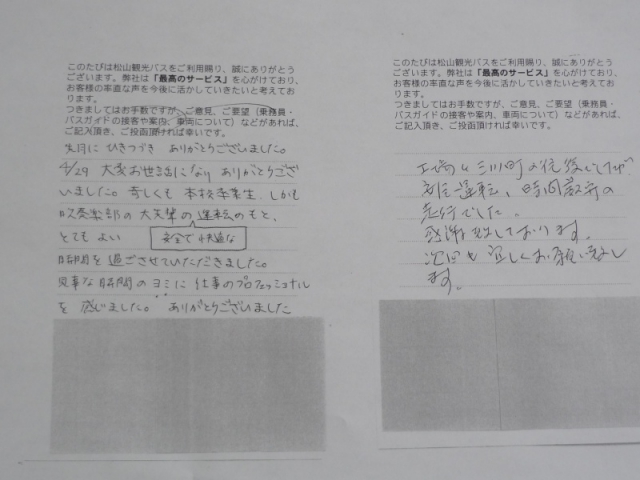 このたびは松山観光バスをご利用賜り、誠にありがとう
ございます。弊社は「最高のサービス」を心がけており、
お客様の率直な声を今後に活かしていきたいと考えてお
ります。
つきましてはお手数ですが、ご意見、ご要望（乗務員・
バスガイドの接客や案内、車両について）などがあれば、
ご記入頂き、ご投函頂ければ幸いです。
先月に ひきつづき ありがとうございました。
4/29 大変お世話になり ありがとうござ
いました。奇しくも 本校卒業生 しかも
吹奏楽部の 大先輩の 運転のもと、
とても よい 安全で快適な
時間を 過ごさせていただきました。
見事な 時間の ヨミに 仕事のプロフェッショナル
を 感じました。 ありがとうございました
このたびは松山観光バスをご利用賜り、誠にありがとう
ございます。弊社は「最高のサービス」を心がけており、
お客様の率直な声を今後に活かしていきたいと考えてお
ります。
つきましてはお手数ですが、ご意見、ご要望（乗務員・
バスガイドの接客や案内、車両について）などがあれば、
ご記入頂き、ご投函頂ければ幸いです。
三川町の往復でしたが
安全運転、時間厳守の
走行でした。
感謝致しております。
次回も宜しくお願い致し
ます。